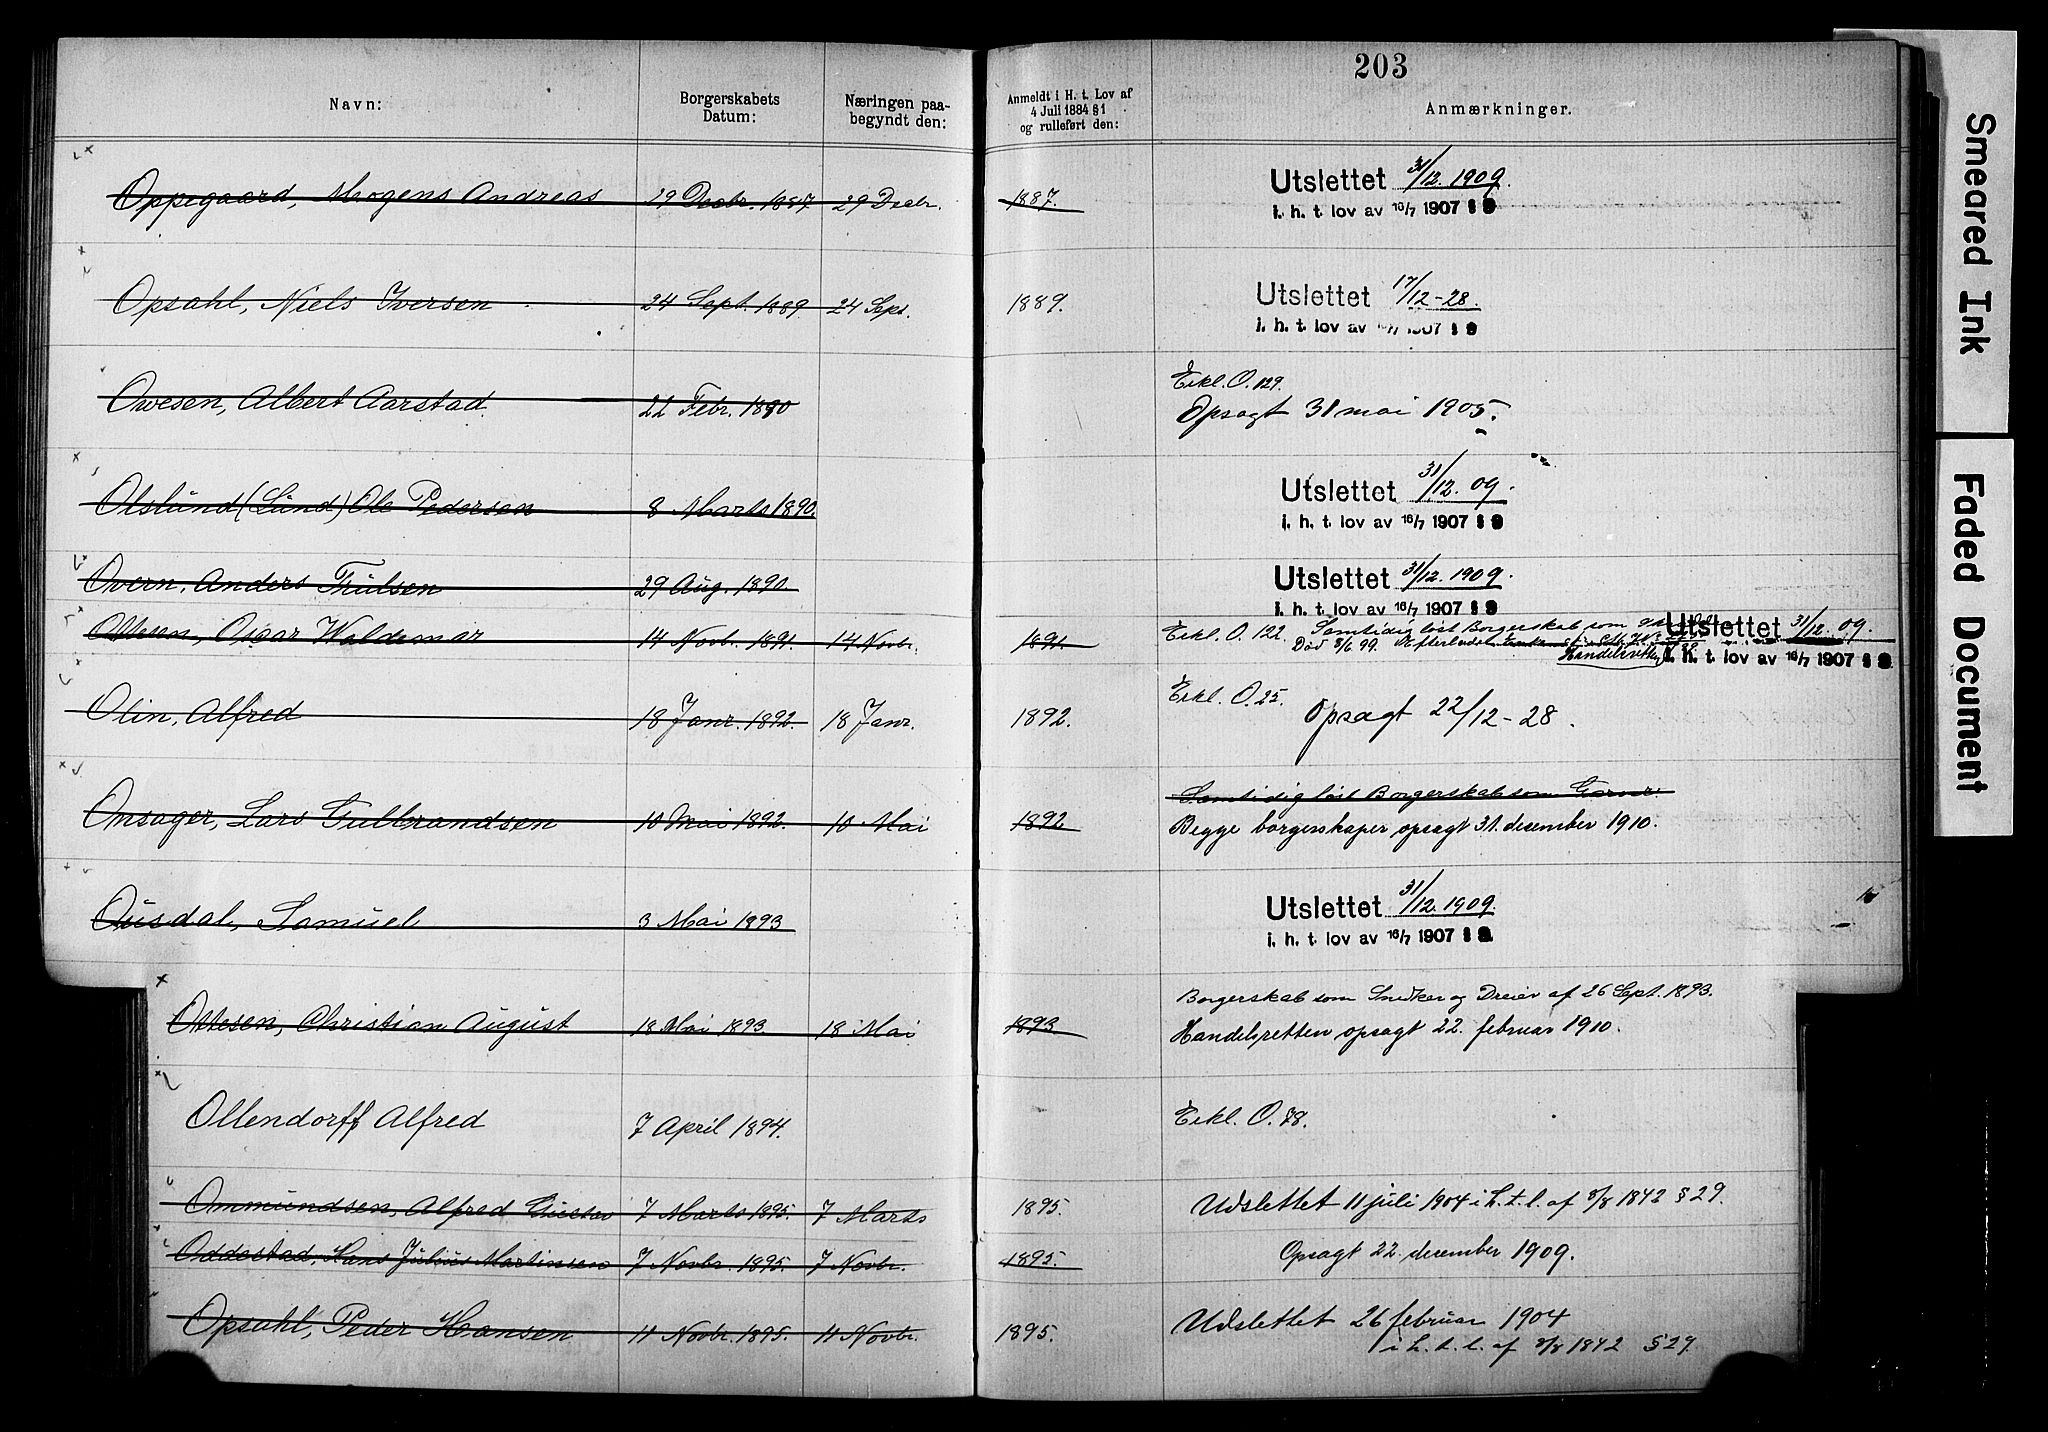 203
Navn: Borgerskabets Datum: Næringen paabegyndt den: Anmeldt i H. t. Lov af 4 Juli 1884 § 1 og rulleført den: Anmærkninger.
Oppegaard, Mogens Andreas 29 Decbr. 1887. 29 Decbr. 1887. Utslettet 31/12. 1909.
i. h. t. lov av 16/7 1907 § 9
Opsahl, Niels Iversen 24 Sept. 1889. 24 Sept. 1889. Utslettet 17/12-28.
i. h. t. lov av 16/7 1907 § 9
Erkl. O. 129.
Owesen, Albert Aarstad. 22 Febr. 1890 Opsagt 31 mai 1905.
Olslund (Lund) Ole Pedersen 8 Marts 1890. Utslettet 31/12. 09.
i. h. t. lov av 16/7 1907 § 9
Overn, Anders Trulsen 29 Aug. 1890. Utslettet 31/12. 1909.
i. h. t. lov av 16/7 1907 § 9
Ottesen, Oscar Waldemar 14 Novb. 1891. 14 Novbr. 1891. Erkl. O. 122. Samtidig løst Borgerskab som Utslettet 31/12. 09.
Død 5/6 99. Efterladt Enke
Handelsretten i. h. t. lov av 16/7 1907 § 9
Erkl. O. 25.
Olin, Alfred 18 Janr. 1892. 18 Janr. 1892. Opsagt 22/12-28.
Samtidig løst Borgerskab som
Onsager, Lars Gulbrandsen 10 Mai 1892. 10 Mai 1892 Begge borgerskaper opsagt 31. desember 1910.
Ousdal, Samuel 3 Mai 1893 Utslettet 31/12. 1909.
i. h. t. lov av 16/7 1907 § 9
Borgerskab som Snedker og Dreier af 26 Sept. 1893.
Ottesen, Christian August 18 Mai 1893 18 Mai 1893 Handelsretten opsagt 22. februar 1910.
Ollendorff Alfred 7 April 1894. Erkl. O. 78.
Ommundsen, Alfred Gustav 7 Marts 1895. 7 Marts 1895. Udslettet 11 juli 1904 i h. t. l. af 8/8 1842 § 29.
Oddestad, Hans Julius Martinsen 7 Novbr. 1895. 7 Novbr. 1895. Opsagt 22. desember 1909.
Opsahl, Peder Hansen 11 Novbr. 1895. 11 Novbr. 1895. Udslettet 26 februar 1904
i h. t. l. af 8/8 1842 § 29.
Smeared Ink
Faded Document